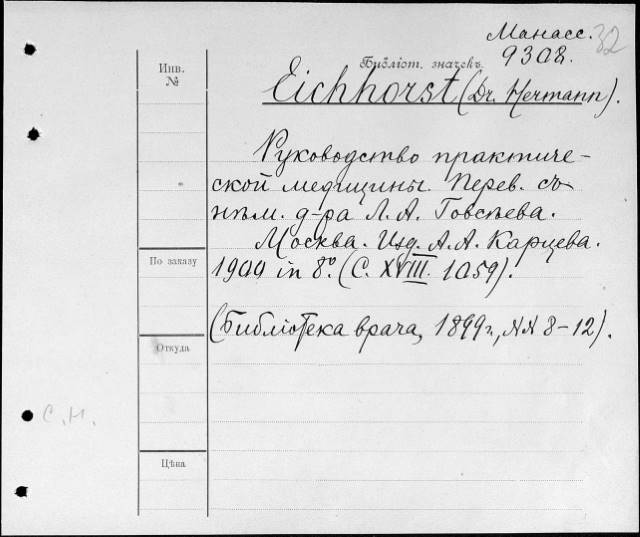 Манасс. 32
Библіот. значекъ
9308.
Инв.
№
Eichhorst (Dr. Hermann).
Руководство практиче-
ской медицины. Перев. съ
нѣм. д-ра Л. А. Говсѣева.
Москва. Изд. А. А. Карцева.
По заказу
1900 in 8º. (С. XVIII. 1059).
(Библіотека врача, 1899 г., №№ 8-12).
Откуда
С. Н.
Цѣна